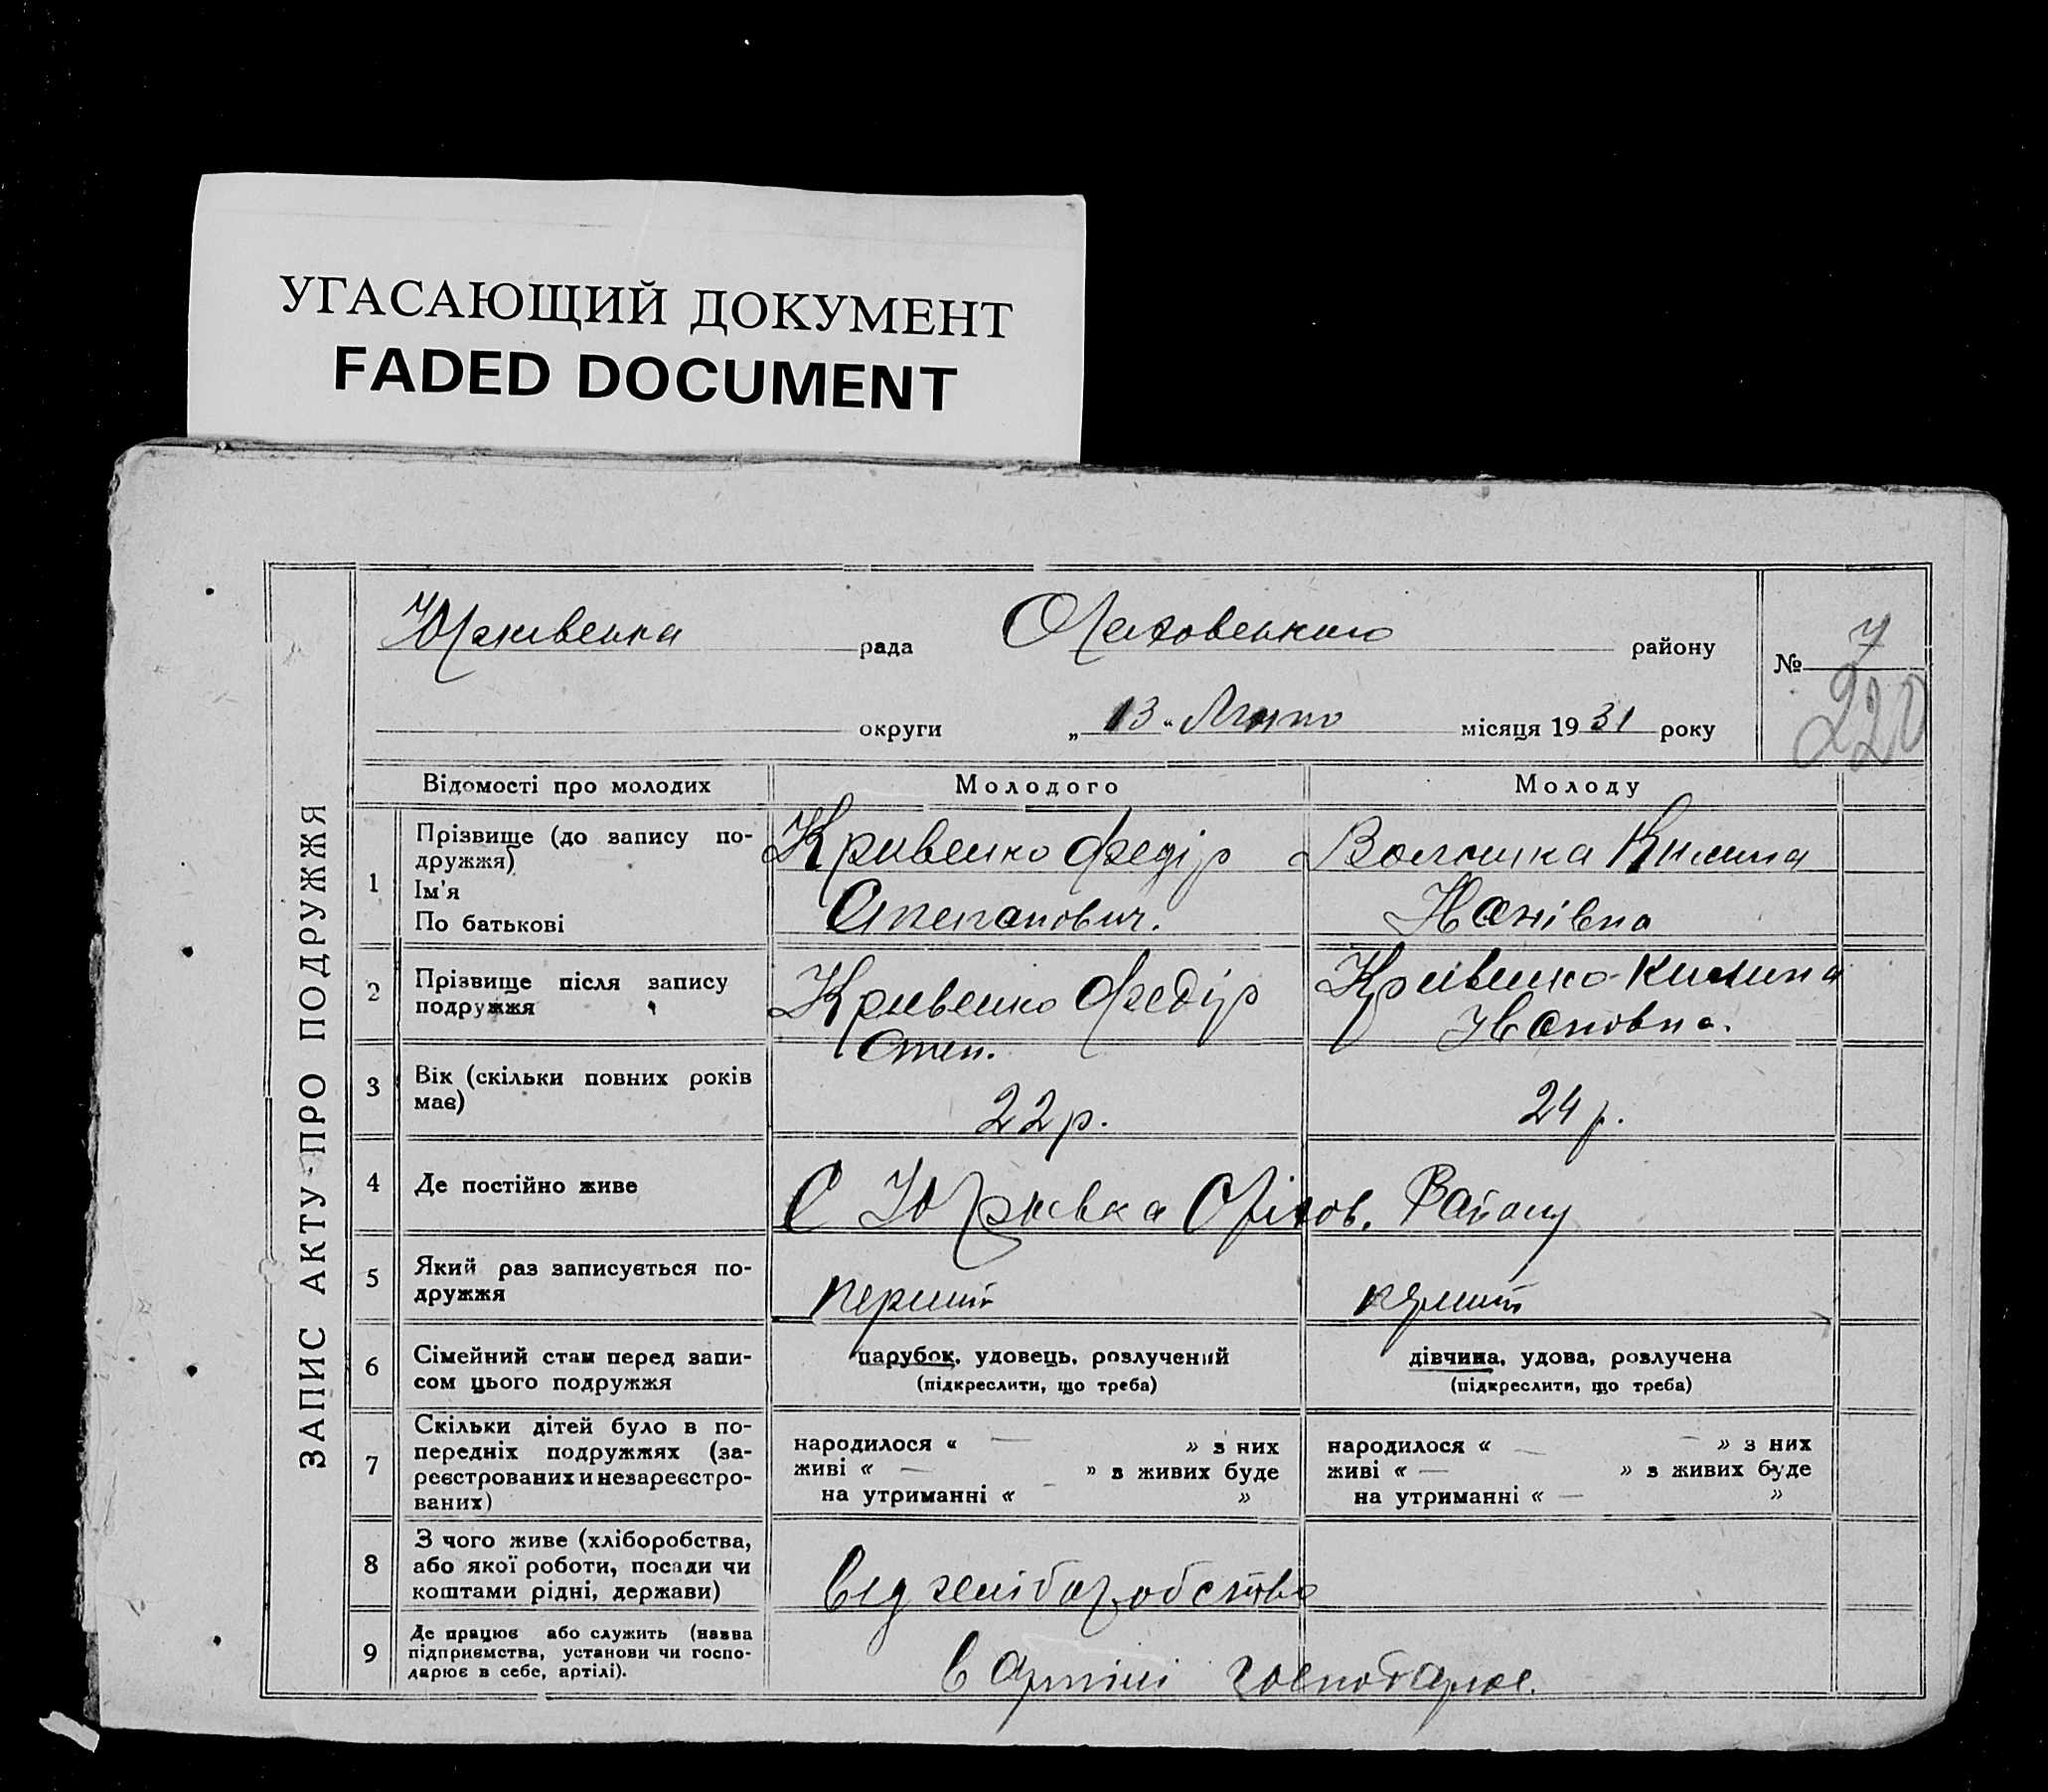 УГАСАЮЩИЙ ДОКУМЕНТ
FADED DOCUMENT
ЗАПИС АКТУ ПРО ПОДРУЖЖЯ
Юрківська рада Оріховського району
№ 7
220
округи „13“ Лютого місяця 1931 року
Відомості про молодих
Молодого
Молоду
1
Прізвище (до запису по-
дружжя)
Ім'я
По батькові
Кривенко Федір
Степанович.
Килина
Іванівна
2
Прізвище після запису
подружжя
Кривенко Федір
Степ.
Кривенко Килина
Івановна.
3
Вік (скільки повних років
має)
22 р.
24 р.
4
Де постійно живе
С Юрківка Оріхов. Району
5
Який раз записується по-
дружжя
перший
перший
6
Сімейний стан перед запи-
сом цього подружжя
парубок, удовець, розлучений
(підкреслити, що треба)
дівчина, удова, розлучена
(підкреслити, що треба)
7
Скільки дітей було в по-
передніх подружжях (за-
реєстрованих и незареєстро-
ваних)
народилося « — » з них
живі « — » з живих буде
на утриманні « — »
народилося « — » з них
живі « — » з живих буде
на утриманні « — »
8
З чого живе (хліборобства,
або якої роботи, посади чи
коштами рідні, держави)
від хліборобства
9
Де працює або служить (назва
підприємства, установи чи госпо-
дарює в себе, артілі).
в артілі господарює.